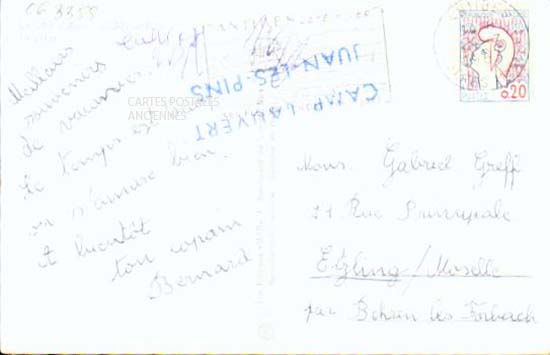 CG 8355
Meilleurs
souvenirs
de vacances.
Le temps est
on s'amuse bien.
A bientôt
ton copain
Bernard
CARTES POSTALES
ANCIENNES
CAMP LAUVERT
JUAN-LES-PINS
0,20
Mons. Gabriel Greff
11 Rue Principale
Etzling/Moselle
par Behren les Forbach